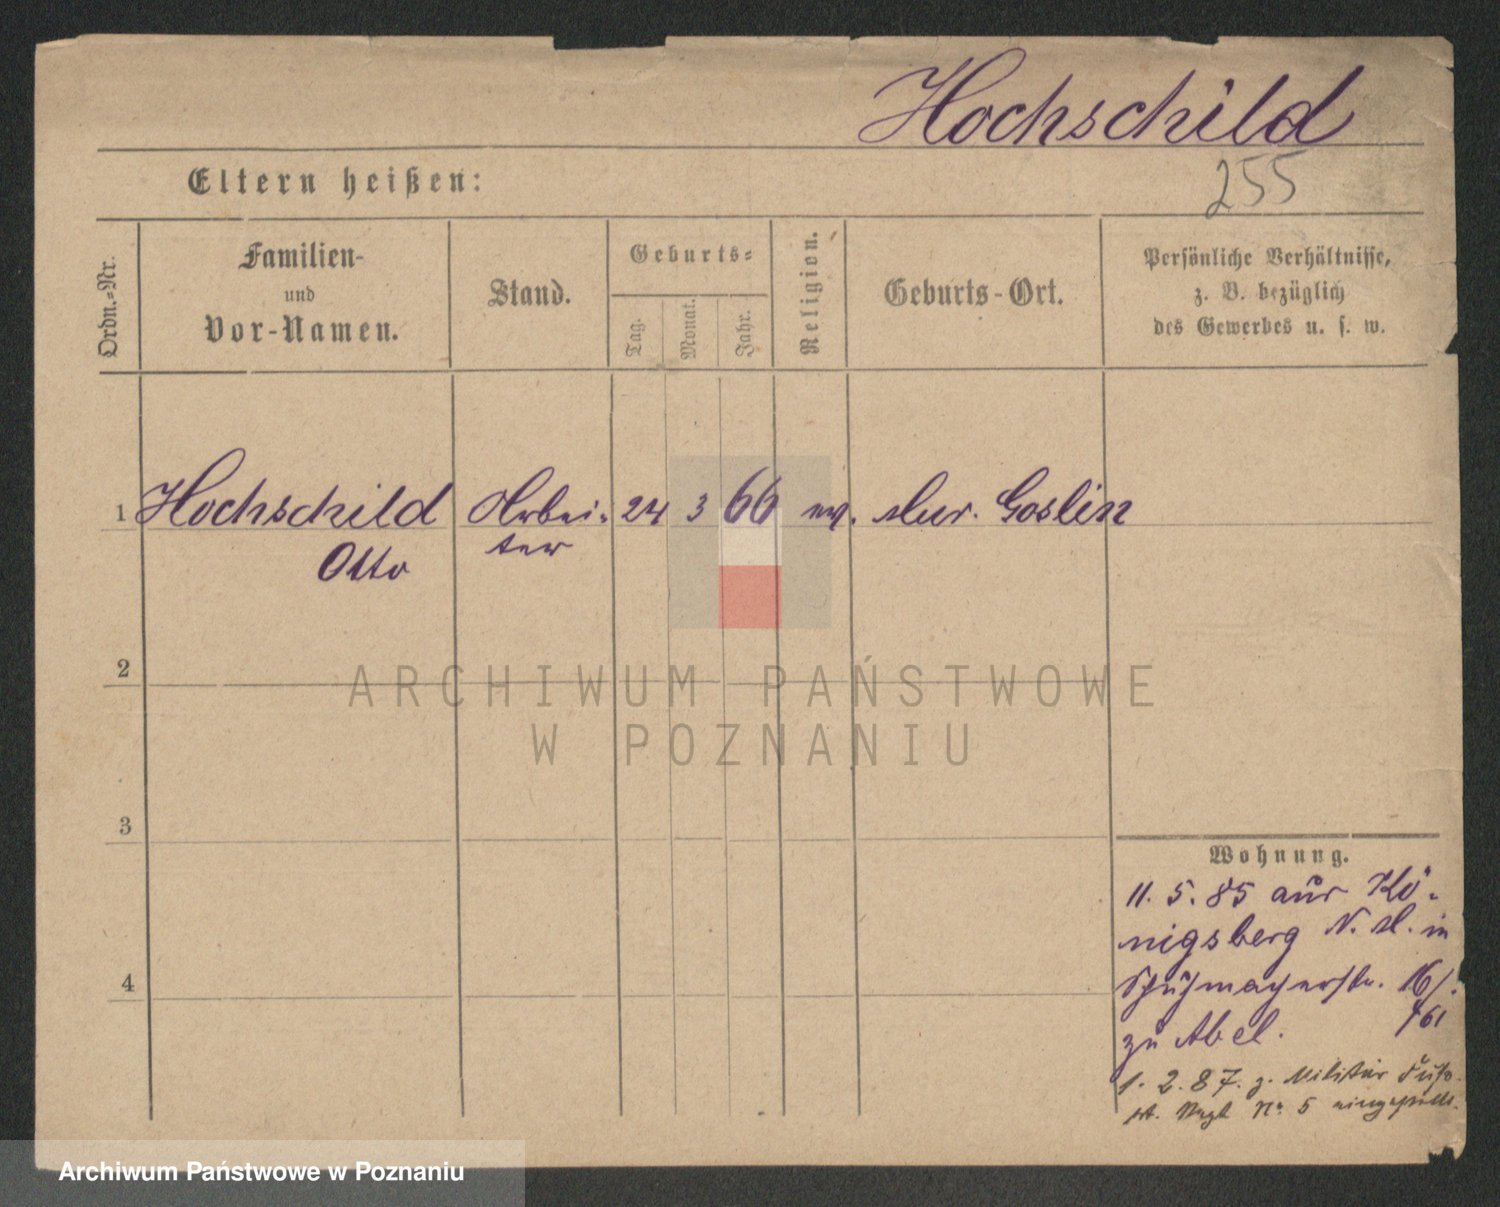 Hochschild
255
Eltern heißen:
Ordn.-Nr.
Familien-
und
Vor-Namen.
Stand.
Geburts-
Tag.
Monat.
Jahr.
Religion.
Geburts-Ort.
Persönliche Verhältnisse,
z. B. bezüglich
des Gewerbes u. s. w.
1 Hochschild Arbei- 24 3 66 ev. Mur. Goslin
Otto ter
2
ARCHIWUM PAŃSTWOWE
W POZNANIU
3
4
Wohnung.
11. 5. 85 aus Kö-
nigsberg N. M. in
Schuhmacherstr. 16/.
zu Abel. 761
1. 2. 87. z. Militär
Regt No 5
Archiwum Państwowe w Poznaniu